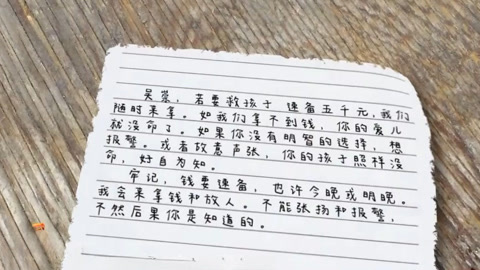 吴崇，若要救孩子速备五千元，我们
随时来拿。如我们拿不到钱，你的爱儿
就没命了。如果你没有明智的选择，想
报警。或者故意声张，你的孩子照样没
命，好自为知。
牢记，钱要速备，也许今晚或明晚。
我会来拿钱和放人。不能张扬和报警，
不然后果你是知道的。